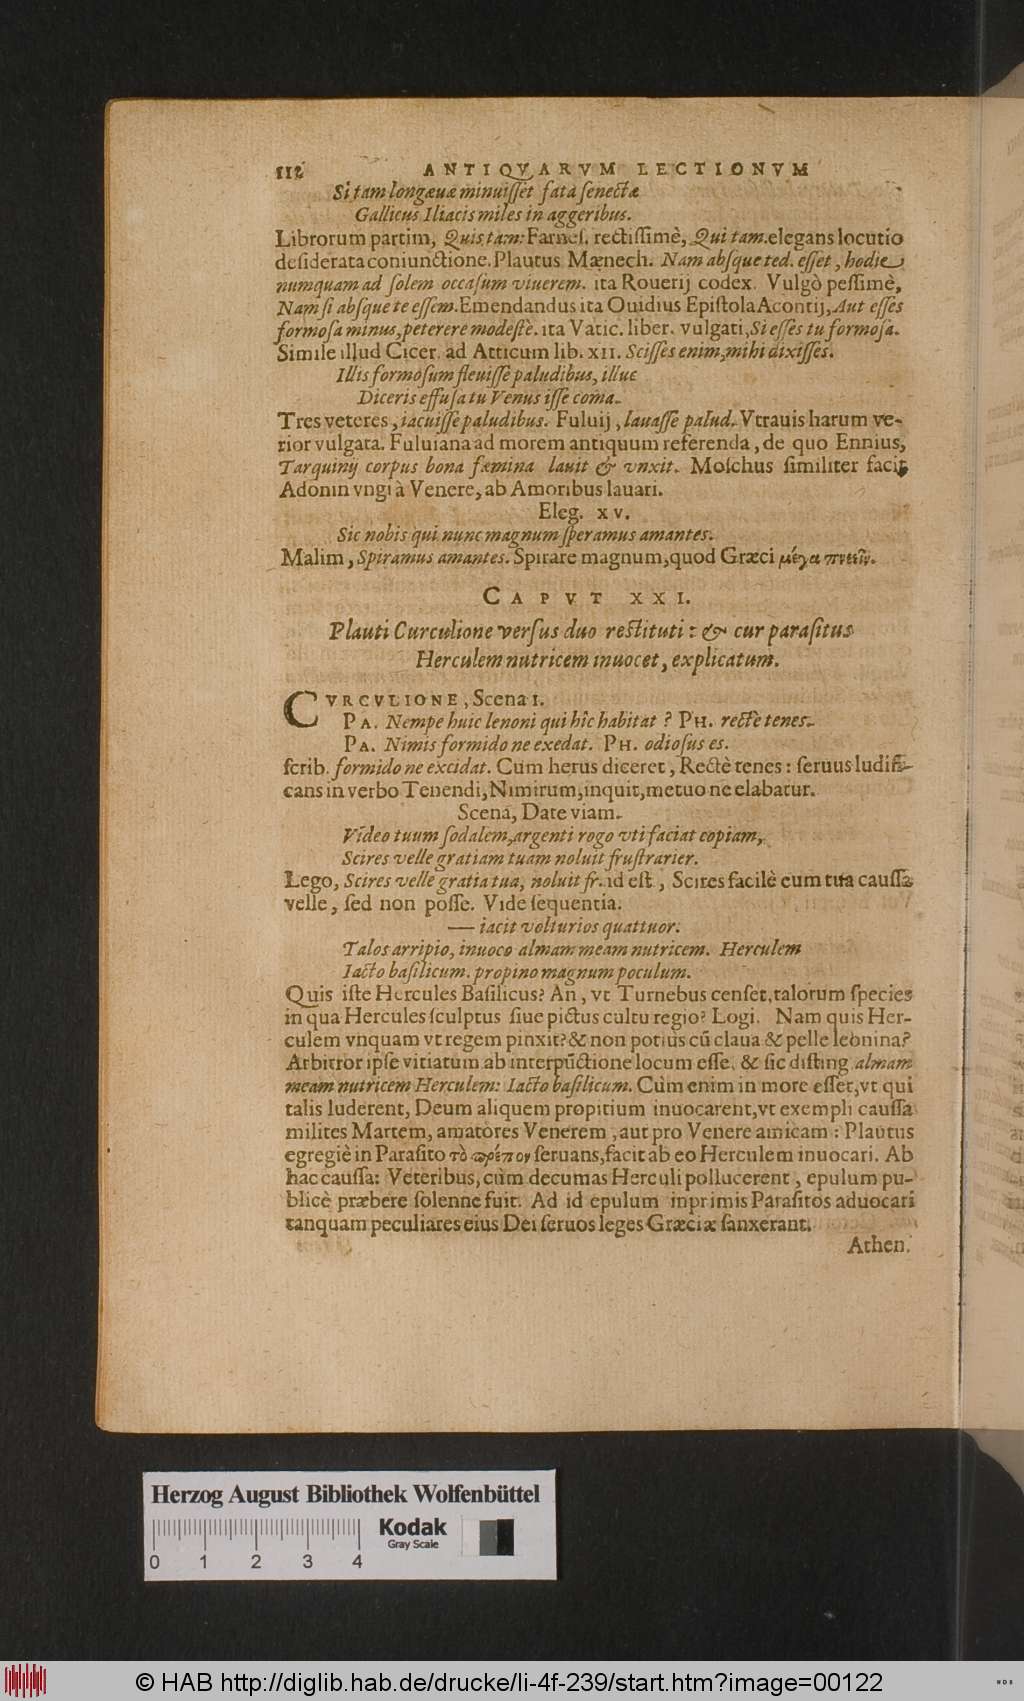 112 ANTIQVARVM LECTIONVM
Si tam longæuæ minuisset fata senectæ
Gallicus Iliacis miles in aggeribus.
Librorum partim, Quis tam: Farnes. rectissimè, Qui tam. elegans locutio
desiderata coniunctione. Plautus Mænech. Nam absque ted. esset, hodie
numquam ad solem occasum viuerem. ita Rouerij codex. Vulgò pessimè,
Nam si absque te essem. Emendandus ita Ouidius Epistola Acontij, Aut esses
formosa minus, peterere modestè. ita Vatic. liber. vulgati, Si esses tu formosa.
Simile illud Cicer. ad Atticum lib. XII. Scisses enim, mihi dixisses.
Illis formosum fleuisse paludibus, illuc
Diceris effusa tu Venus isse coma.
Tres veteres, iacuisse paludibus. Fuluij, lauasse palud. Vtrauis harum ve-
rior vulgata. Fuluiana ad morem antiquum referenda, de quo Ennius,
Tarquinij corpus bona fæmina lauit & vnxit. Moschus similiter facit
Adonin vngi à Venere, ab Amoribus lauari.
Eleg. XV.
Sic nobis qui nunc magnum speramus amantes.
Malim, Spiramus amantes. Spirare magnum, quod Græci μέγα πνεῖν.
CAPVT XXI.
Plauti Curculione versus duo restituti: & cur parasitus
Herculem nutricem inuocet, explicatum.
CVRCVLIONE, Scena I.
PA. Nempe huic lenoni qui hîc habitat? PH. rectè tenes.
PA. Nimis formido ne exedat. PH. odiosus es.
scrib. formido ne excidat. Cum herus diceret, Rectè tenes: seruus ludifi-
cans in verbo Tenendi, Nimirum, inquit, metuo ne elabatur.
Scena, Date viam.
Video tuum sodalem, argenti rogo vti faciat copiam,
Scires velle gratiam tuam noluit frustrarier.
Lego, Scires velle gratia tua, noluit fr. id est, Scires facilè eum tua caussa
velle, sed non posse. Vide sequentia.
— iacit volturios quattuor.
Talos arripio, inuoco almam meam nutricem. Herculem
Iacto basilicum. propino magnum poculum.
Quis iste Hercules Basilicus? An, vt Turnebus censet, talorum species
in qua Hercules sculptus siue pictus cultu regio? Logi. Nam quis Her-
culem vnquam vt regem pinxit? & non potiùs cũ claua & pelle leonina?
Arbitror ipse vitiatum ab interpũctione locum esse. & sic disting. almam
meam nutricem Herculem: Iacto basilicum. Cùm enim in more esset, vt qui
talis luderent, Deum aliquem propitium inuocarent, vt exempli caussa
milites Martem, amatores Venerem, aut pro Venere amicam: Plautus
egregiè in Parasito τὸ πρέπον seruans, facit ab eo Herculem inuocari. Ab
hac caussa: Veteribus, cùm decumas Herculi pollucerent, epulum pu-
blicè præbere solenne fuit. Ad id epulum inprimis Parasitos aduocari
tanquam peculiares eius Dei seruos leges Græciæ sanxerant.
Athen.
Herzog August Bibliothek Wolfenbüttel
Kodak
Gray Scale
0 1 2 3 4
© HAB http://diglib.hab.de/drucke/li-4f-239/start.htm?image=00122